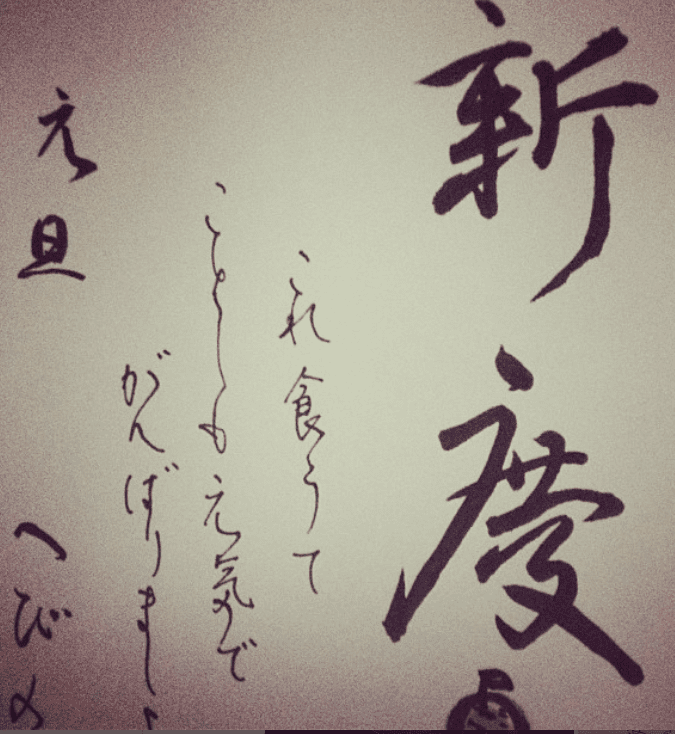 新慶
これ食うて
ことしも元気で
がんばりまし
元旦
へびの